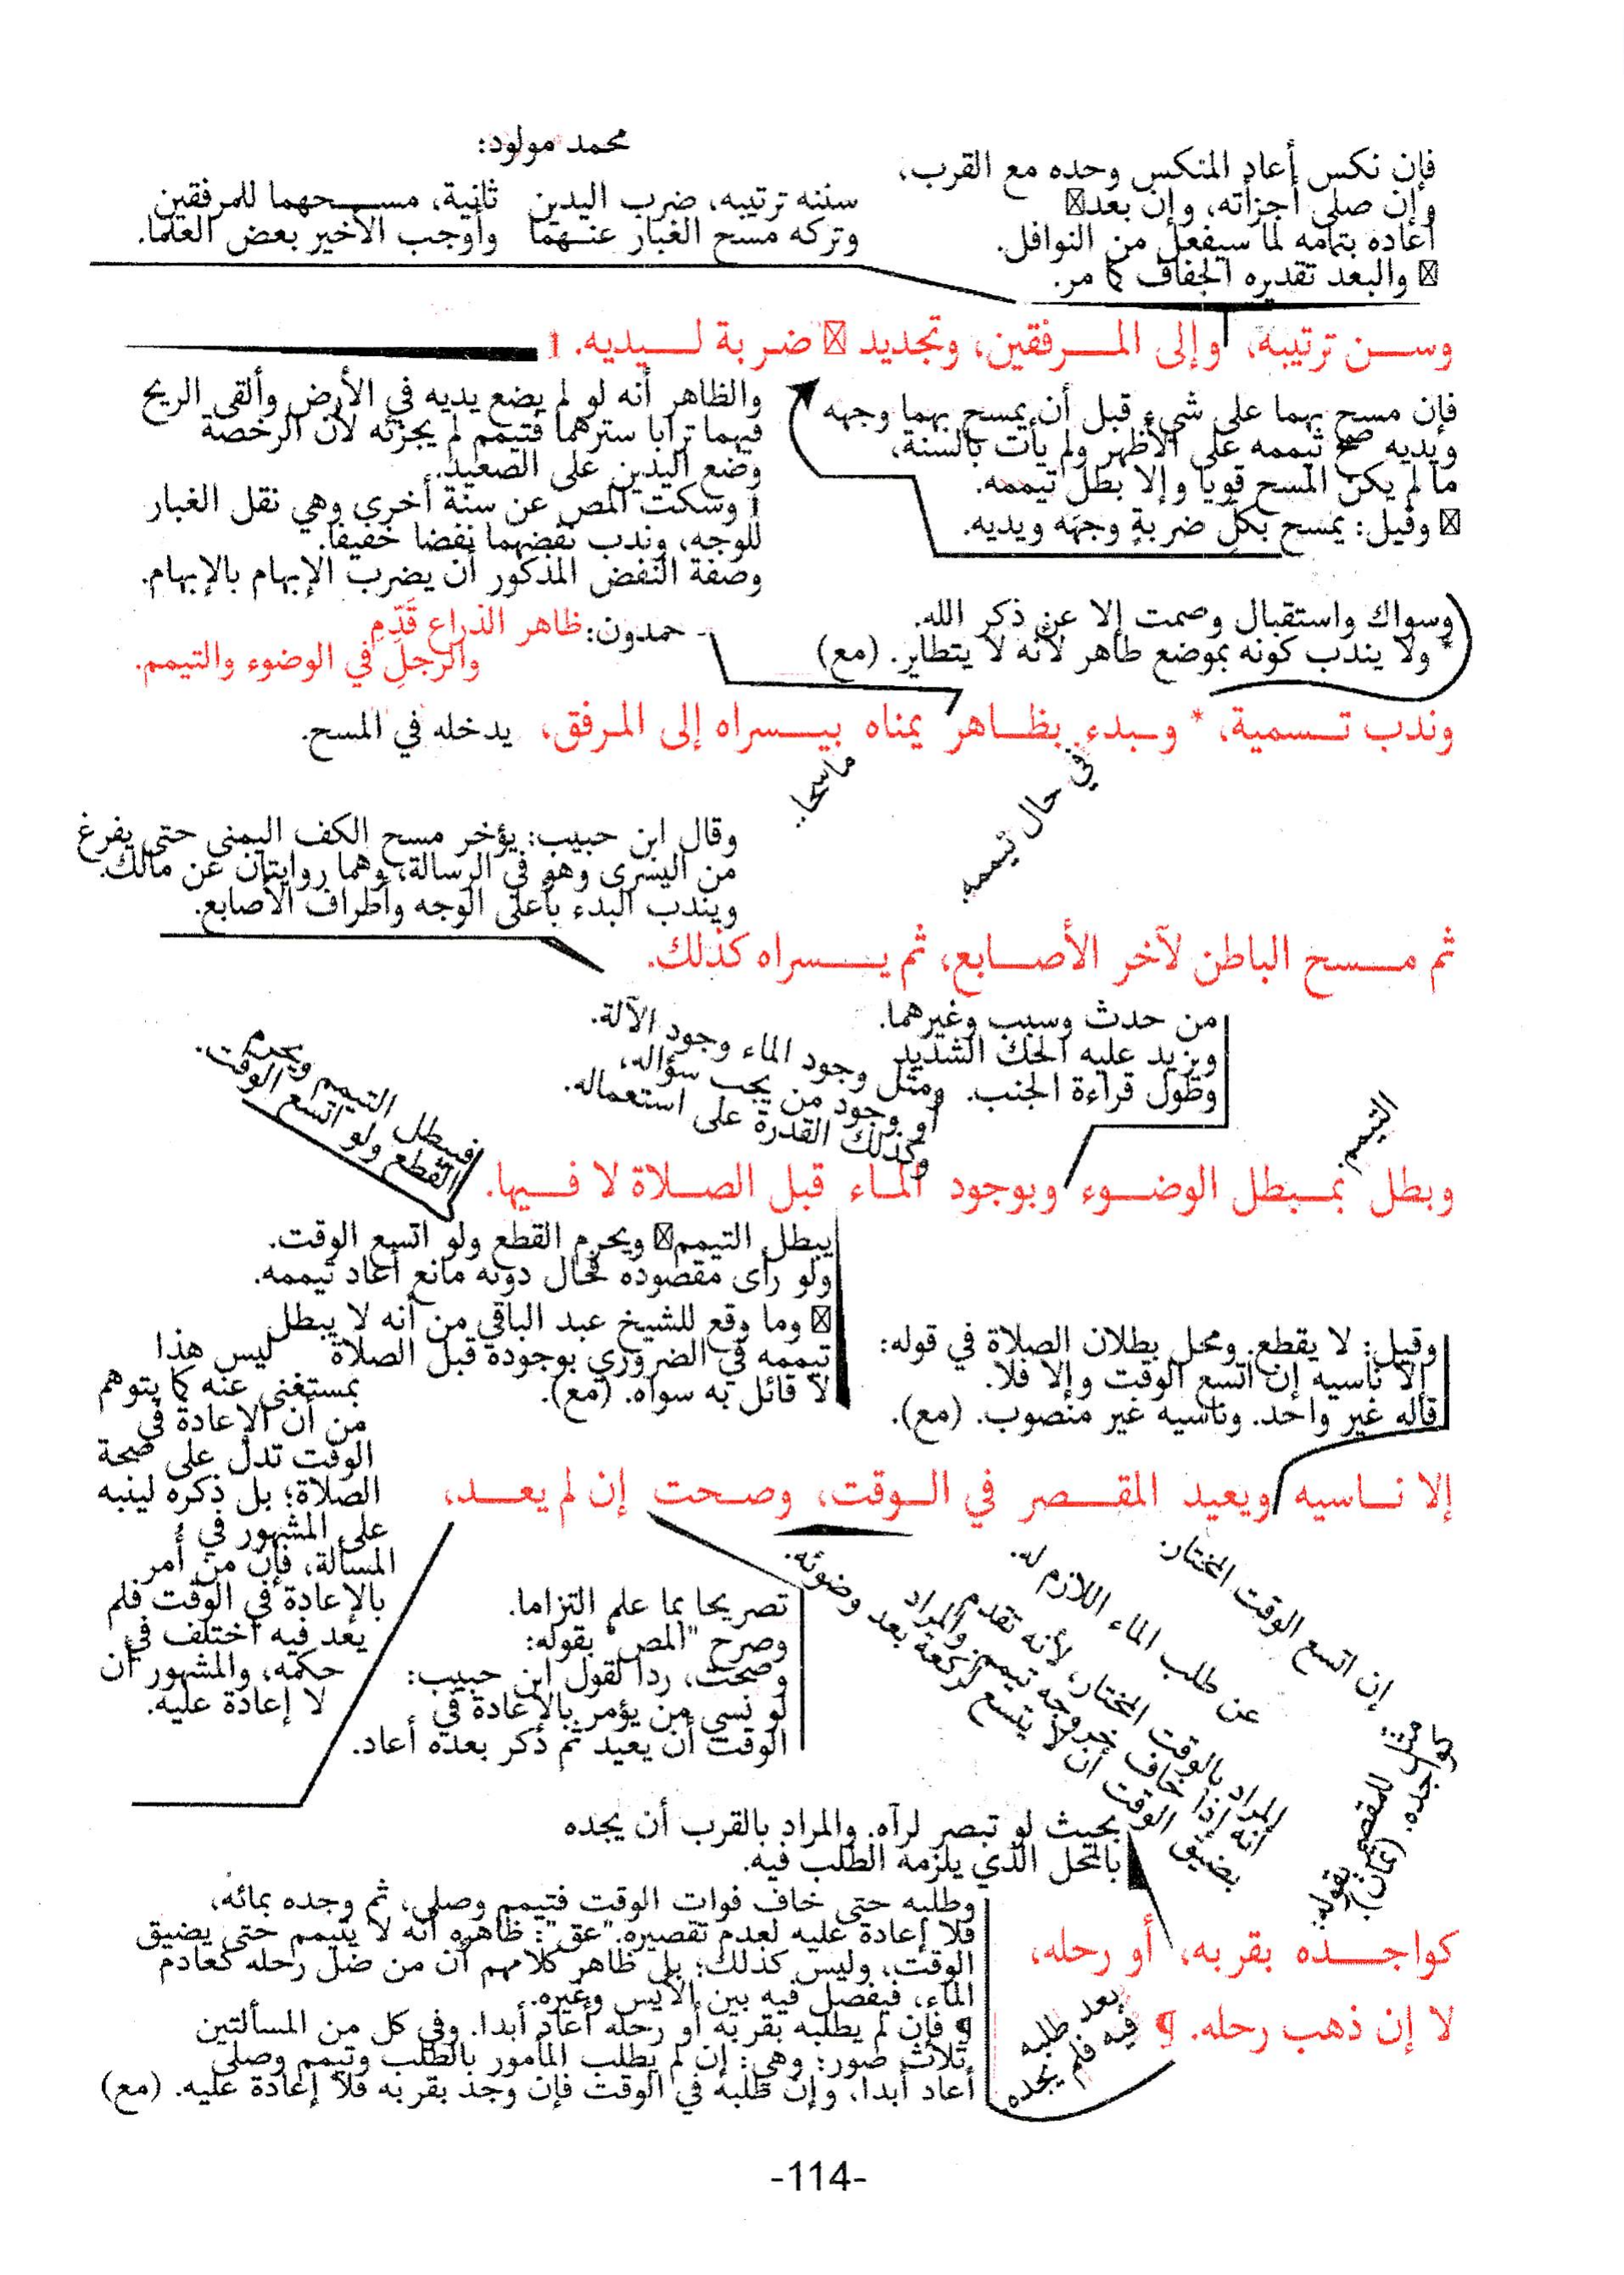 فإن نكس أعاد المنكس وحده مع القرب،
وإن صلى أجزأته، وإن بعد
أعاده بتمامه لما سيفعل من النوافل.
والبعد تقديره الجفاف كما مر.
محمد مولود:
سننه ترتيبه، ضرب اليدين ثانية، مسحهما للمرفقين
وتركه مسح الغبار عنهما وأوجب الأخير بعض العلما.
وسن ترتيبه، وإلى المرفقين، وتجديد ضربة ليديه.
فإن مسح بهما على شيء قبل أن يمسح بهما وجهه
ويديه صح تيممه على الأظهر ولم يأت بالسنة،
ما لم يكن المسح قويا وإلا بطل تيممه.
وقيل: يمسح بكل ضربةٍ وجهَه ويديه.
والظاهر أنه لو لم يضع يديه في الأرض وألقى الريح
فيهما ترابا سترهما فتيمم لم يجزئه لأن الرخصة
وضع اليدين على الصعيد.
وسكت المص عن سنة أخرى وهي نقل الغبار
للوجه، وندب نفضهما نفضا خفيفا.
وصفة النفض المذكور أن يضرب الإبهام بالإبهام.
وسواك واستقبال وصمت إلا عن ذكر الله.
* ولا يندب كونه بموضع طاهر لأنه لا يتطاير. (مع)
- حمدون: ظاهر الذراع قَدِّمِ
والرجلِ في الوضوء والتيمم.
وندب تسمية، * وبدء بظاهر يمناه بيسراه إلى المرفق، يدخله في المسح.
ماسحا.
في حال تيممه.
وقال ابن حبيب: يؤخر مسح الكف اليمنى حتى يفرغ
من اليسرى وهو في الرسالة، وهما روايتان عن مالك.
ويندب البدء بأعلى الوجه وأطراف الأصابع.
ثم مسح الباطن لآخر الأصابع، ثم يسراه كذلك.
من حدث وسبب وغيرهما.
ويزيد عليه الحك الشديد
وطول قراءة الجنب.
ومثل وجود الماء وجود الآلة.
أو وجود من يجب سؤاله،
وكذلك القدرة على استعماله.
فيبطل التيمم ويحرم
القطع ولو اتسع الوقت.
التيمم
وبطل بمبطل الوضوء وبوجود الماء قبل الصلاة لا فيها.
يبطل التيمم ويحرم القطع ولو اتسع الوقت.
ولو رأى مقصوده فحال دونه مانع أعاد تيممه.
وما وقع للشيخ عبد الباقي من أنه لا يبطل
تيممه في الضروري بوجوده قبل الصلاة
لا قائل به سواه. (مع).
وقيل: لا يقطع. ومحل بطلان الصلاة في قوله:
إلا ناسيه إن اتسع الوقت وإلا فلا.
قاله غير واحد. وناسيه غير منصوب. (مع).
إلا ناسيه ويعيد المقصر في الوقت، وصحت إن لم يعد،
ليس هذا
بمستغنى عنه كما يتوهم
من أن الإعادة في
الوقت تدل على صحة
الصلاة؛ بل ذكره لينبه
على المشهور في
المسألة، فإن من أمر
بالإعادة في الوقت فلم
يعد فيه اختلف في
حكمه، والمشهور أن
لا إعادة عليه.
تصريحا بما علم التزاما.
وصرح "المص" بقوله:
وصحت، ردا لقول ابن حبيب:
لو نسي من يؤمر بالإعادة في
الوقت أن يعيد ثم ذكر بعده أعاد.
إن اتسع الوقت المختار.
عن طلب الماء اللازم له.
المراد بالوقت المختار، لأنه تقدم
أنه إذا خاف خروجه تيمم، والمراد
بضيق الوقت أن لا يتسع لركعة بعد وضوئه.
مثل للمقصر بقوله:
كواجده. (عان).
بحيث لو تبصر لرآه. والمراد بالقرب أن يجده
بالمحل الذي يلزمه الطلب فيه.
كواجده بقربه، أو رحله،
وطلبه حتى خاف فوات الوقت فتيمم وصلى، ثم وجده بمائه،
فلا إعادة عليه لعدم تقصيره. "عق": ظاهره أنه لا يتيمم حتى يضيق
الوقت، وليس كذلك؛ بل ظاهر كلامهم أن من ضل رحله كعادم
الماء، فيفصل فيه بين الآيس وغيره.
¶ فإن لم يطلبه بقربه أو رحله أعاد أبدا. وفي كل من المسألتين
ثلاث صور؛ وهي: إن لم يطلب المأمور بالطلب وتيمم وصلى
أعاد أبدا، وإن طلبه في الوقت فإن وجد بقربه فلا إعادة عليه. (مع)
لا إن ذهب رحله. ¶
بعد طلبه
فيه فلم يجده
-114-